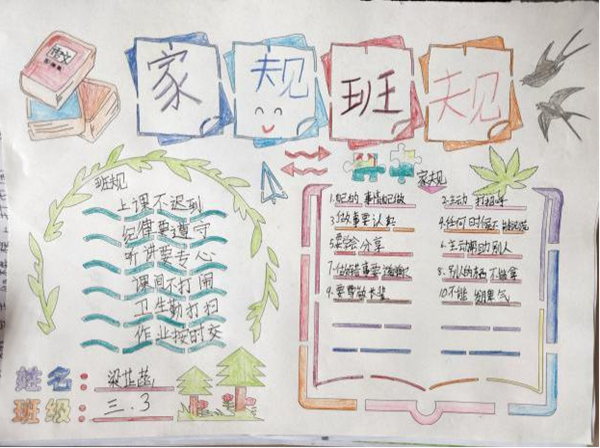 语文
家规班规
班规
上课不迟到
纪律要遵守
听讲要专心
课间不打闹
卫生勤打扫
作业按时交
家规
1.自己的事情自己做
2.主动打招呼
3.做事要认真
4.任何时候不
5.要学会分享
6.主动帮助别人
7.做错事要道歉
8.别人的东西不能拿
9.要
10.不能 脾气
姓名:
班级:三.3